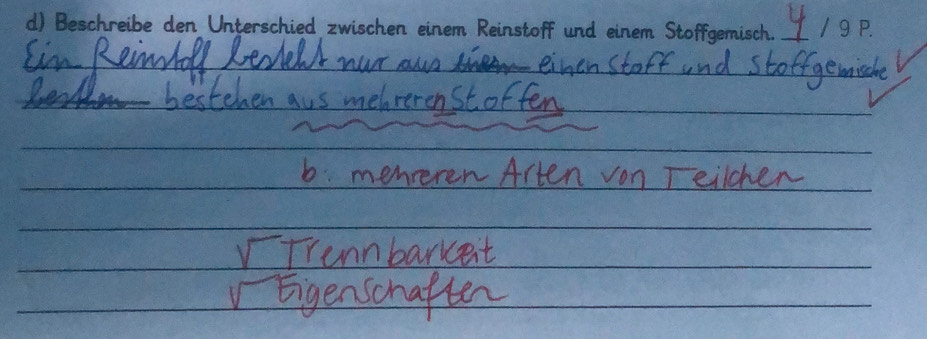 d) Beschreibe den Unterschied zwischen einem Reinstoff und einem Stoffgemisch. 4 / 9 P.
Ein Reinstoff besteht nur aus einen Stoff und Stoffgemische ✓
bestehen aus mehreren Stoffen ✓
b. mehreren Arten von Teilchen
√ Trennbarkeit
√ Eigenschaften